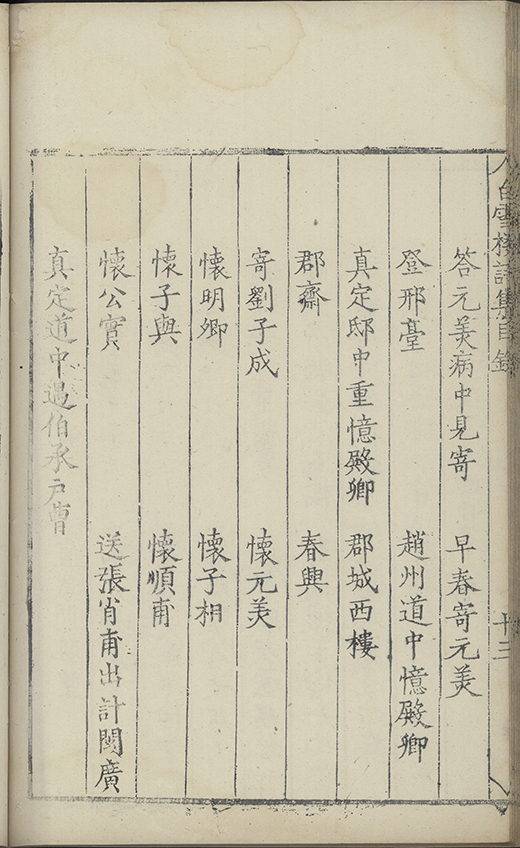 白雪樓詩集目錄 十三
答元美病中見寄 早春寄元美
登邢臺 趙州道中憶殿卿
真定邸中重憶殿卿 郡城西樓
郡齋 春興
寄劉子成 懷元美
懷明卿 懷子相
懷子與 懷順甫
懷公實 送張肖甫出計閩廣
真定道中遇伯承戶曹